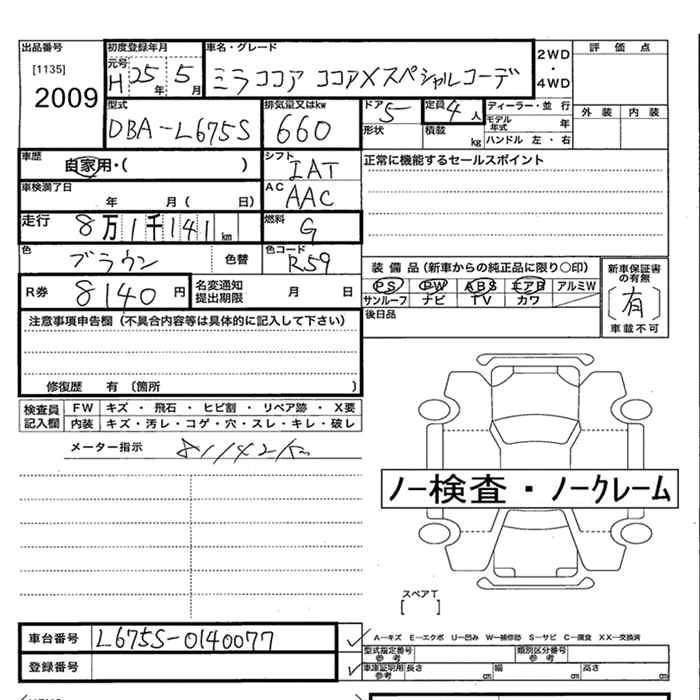 出品番号 初度登録年月 車名・グレード 2WD・4WD 評価点
[1135] 元号 H 25年 5月 ミラココア ココアXスペシャルコーデ
2009
型式 排気量又はkw ドア 5 定員 4人 ディーラー・並行 外装 内装
DBA-L675S 660 形状 積載 kg モデル年式 年
ハンドル 左・右
車歴 自家用・( ) シフト IAT 正常に機能するセールスポイント
車検満了日 年 月( 日) AC AAC
走行 8万1千141km 燃料 G
色 ブラウン 色替 色コード R59
装備品(新車からの純正品に限り○印) 新車保証書の有無
R券 8140円 名変通知提出期限 月 日 PS PW ABS エアB アルミW [有]
サンルーフ ナビ TV カワ 車載不可
注意事項申告欄(不具合内容等は具体的に記入して下さい) 後日品
修復歴 有 〔箇所 〕
検査員記入欄 FW キズ・飛石・ヒビ割・リペア跡・X要
内装 キズ・汚レ・コゲ・穴・スレ・キレ・破レ
メーター指示 81142km
ノー検査・ノークレーム
スペアT
[ ]
車台番号 L675S-0140077
A—キズ E—エクボ U—凹み W—補修跡 S—サビ C—腐食 XX—交換済
型式指定番号 参考 類別区分番号 参考
登録番号 車庫証明用 参考 長さ cm 幅 cm 高さ cm